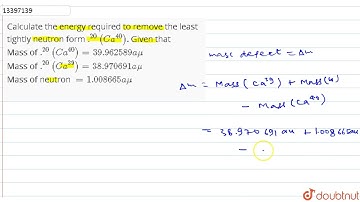 13397139
Calculate the energy required to remove the least
tightly neutron form .²⁰ (Ca⁴⁰). Given that
Mass of .²⁰ (Ca⁴⁰) = 39.962589aμ
Mass of .²⁰ (Ca³⁹) = 38.970691aμ
Mass of neutron = 1.008665aμ
mass defect = Δm
Δm = Mass(Ca³⁹) + Mass(n)
- Mass(Ca⁴⁰)
= 38.970691 au + 1.008665au
-
doubtnut